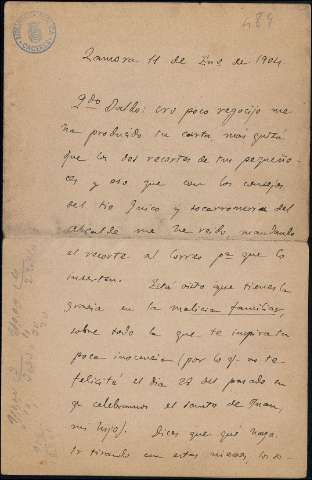 489
Zamora 11 de Eno de 1904
Qdo Daldo: no poco regocijo me
ha producido tu carta, mas quizá
que los dos recortes de tus pequeñe-
ces y eso que con los consejos
del tío Quico y socarronería del
alcalde me he reido, mandando
el recorte al Correo pa que lo
inserten.
Está visto que tienes la
gracia en la malicia familiar,
sobre todo la que te inspira tu
poca inocencia (por lo q. no te
felicité el dia 28 del pasado en
qe celebramos el santo de
mi hijo). Dices que qué hago.
Ir tirando con estas nieves, los